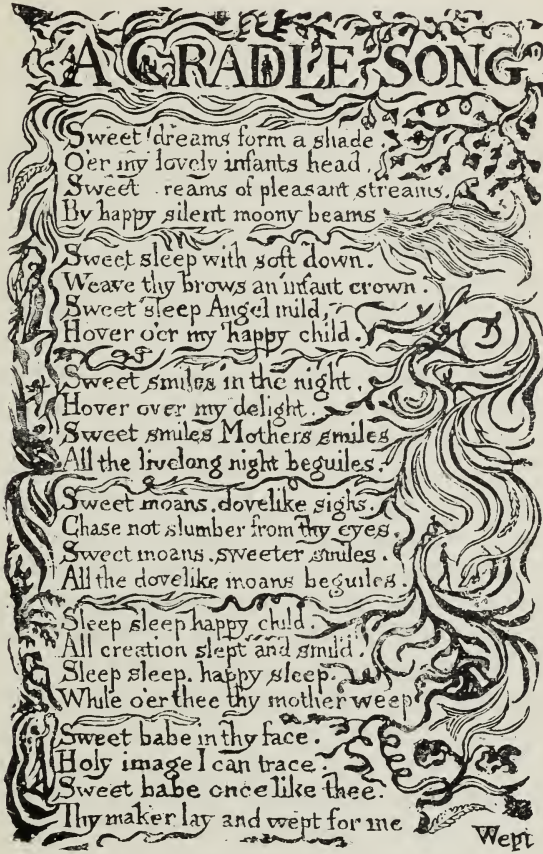 A CRADLE SONG
Sweet dreams form a shade.
O'er my lovely infants head.
Sweet reams of pleasant streams.
By happy silent moony beams
Sweet sleep with soft down.
Weave thy brows an infant crown.
Sweet sleep Angel mild,
Hover o'er my happy child.
Sweet smiles in the night.
Hover over my delight.
Sweet smiles Mothers smiles
All the livelong night beguiles.
Sweet moans. dovelike sighs.
Chase not slumber from thy eyes.
Sweet moans. sweeter smiles.
All the dovelike moans beguiles.
Sleep sleep happy child.
All creation slept and smil'd.
Sleep sleep. happy sleep.
While o'er thee thy mother weep
Sweet babe in thy face.
Holy image I can trace.
Sweet babe once like thee.
Thy maker lay and wept for me
Wept